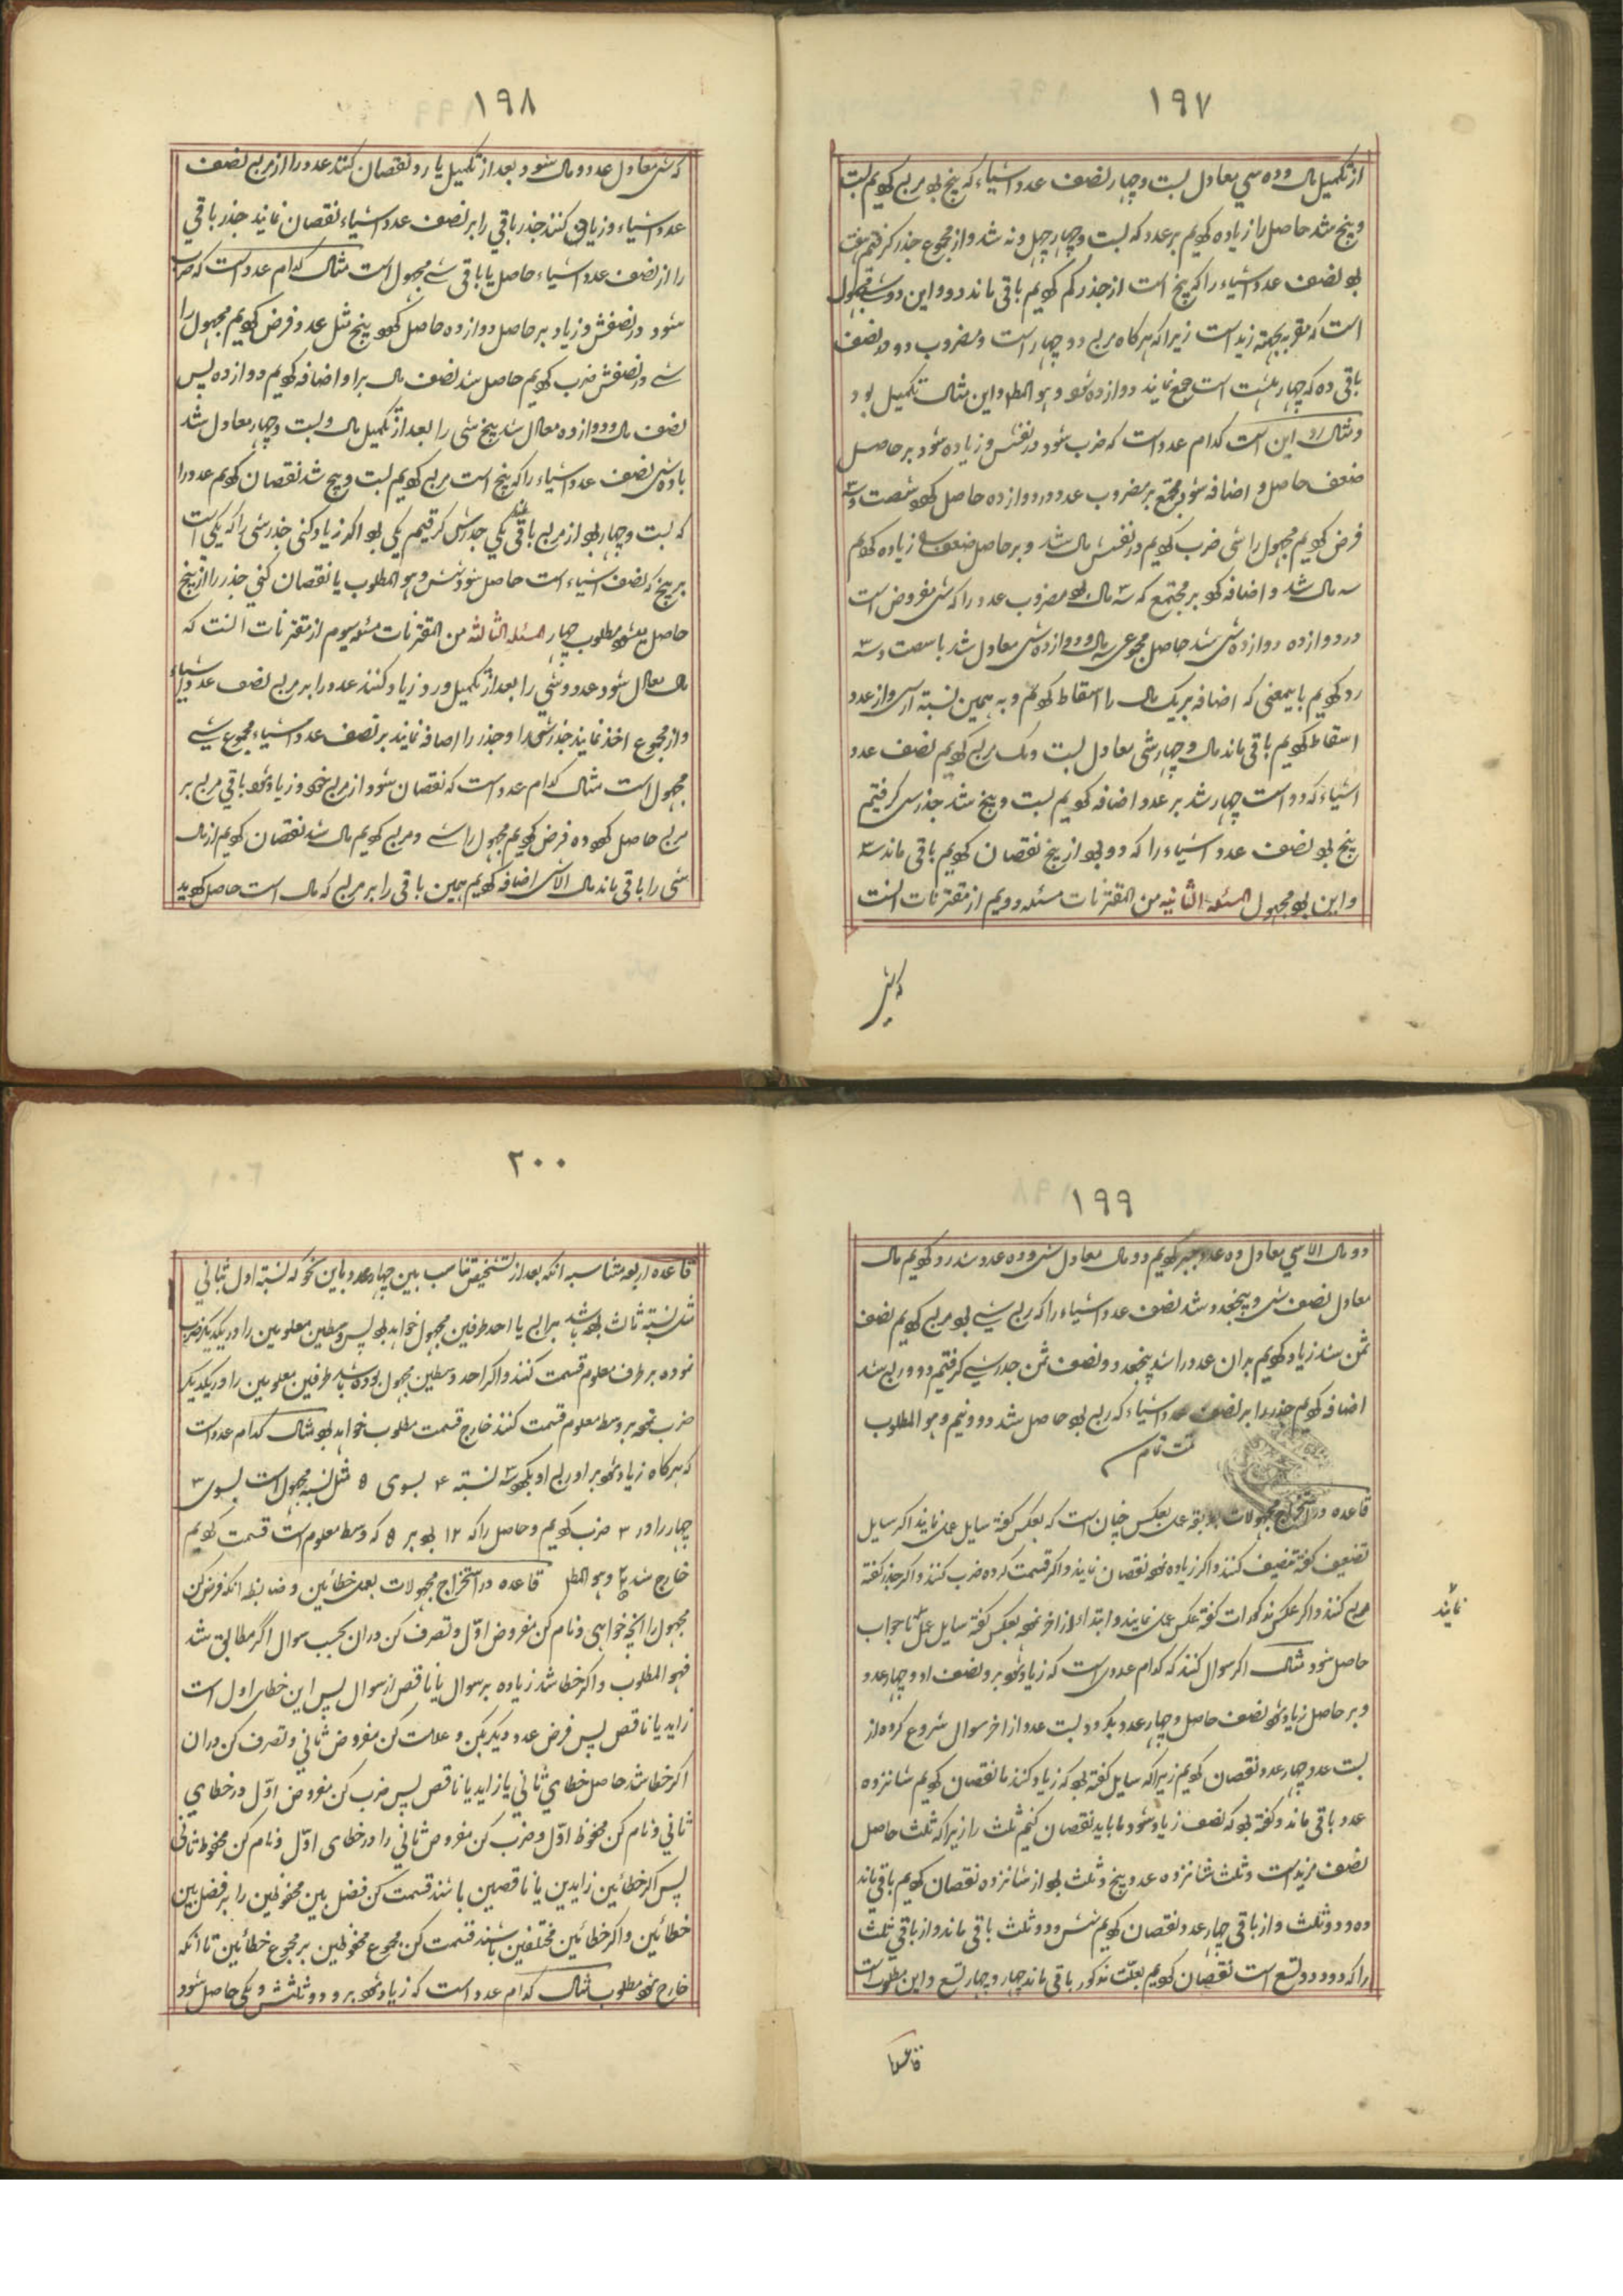 ۱۹۷
از تکمیل مال و ده شی معادل بیست و چهار نصف عدد اشیاء که پنج بود مربع کردیم بیست
و پنج شد حاصل را زیاده کردیم بر عدد که بیست و چهار چهل و نه شد و از مجموع جذر گرفتیم هفت
بود نصف عدد اشیاء را که پنج است از جذر کم کردیم باقی ماند دو و این دو شیء مجهول
است که مقر به بجهته زید است زیرا که هر کاه مربع دو چهار است و مضروب دو در نصف
باقی ده که چهار است جمع نمایند دوازده شود و هو المط و این مثال تکمیل بود
و مثال رد این است کدام عدد است که ضرب شود در نفسش و زیاده شود بر حاصل
ضعف حاصل و اضافه شود بر مجتمع بر مضروب عدد در دوازده حاصل کردد شصت و سه
فرض کردیم مجهول را شی ضرب کردیم در نفسش مال شد و بر حاصل ضعف زیاده کردیم
سه مال شد و اضافه کرد بر مجتمع که سه مال بود مضروب عدد را که شی مفروض است
در دوازده دوازده شی شد حاصل مجموعی سه مال و دوازده شی معادل شد با شصت و سه
رد کردیم باینمعنی که اضافه بر یک مال را اسقاط کردیم و به همین نسبة از شی و از عدد
اسقاط کردیم باقی ماند مال و چهار شی معادل بیست و یک مربع کردیم نصف عدد
اشیاء که دو است چهار شد بر عدد اضافه کردیم بیست و پنج شد جذرش گرفتیم
پنج بود نصف عدد اشیاء را که دو بود از پنج نقصان کردیم باقی ماند سه
و این بود مجهول المسئله الثانیه من المقترنات مسئله دویم از مقترنات انست
که شی
۱۹۸
که شی معادل عدد و مال شود بعد از تکمیل یا رد نقصان کنند عدد را از مربع نصف
عدد اشیاء و زیاد کنند جذر باقی را بر نصف عدد اشیاء نقصان نمایند جذر باقی
را از نصف عدد اشیاء حاصل یا باقی شیء مجهول است مثال کدام عدد است که ضرب
شود در نصفش و زیاد بر حاصل دوازده حاصل کردد پنج مثل عدد فرض کردیم مجهول را
شیء در نصفش ضرب کردیم حاصل شد نصف مال بر او اضافه کردیم دوازده پس
نصف مال و دوازده معادل شد پنج شی را بعد از تکمیل مال و بیست و چهار معادل شد
با ده شی نصف عدد اشیاء را که پنج است مربع کردیم بیست و پنج شد نقصان کردیم عدد را
که بیست و چهار بود از مربع باقی ماند یکی جذرش گرفتیم یکی بود اکر زیاد کنی جذر شی را که یکی است
بر پنج که نصف اشیاء است حاصل شود شش و هو المطلوب یا نقصان کنی جذر را از پنج
حاصل میشود مطلوب چهار المسئله الثالثه من المقترنات مسئله سیوم از مقترنات انست که
مال معادل شود عدد و شیء را بعد از تکمیل و رد زیاد کنند عدد را بر مربع نصف عدد اشیاء
و از مجموع اخذ نمایند جذرش را و جذر را اضافه نمایند بر نصف عدد اشیاء مجموع شیء
مجهول است مثال کدام عدد است که نقصان شود از مربع خود و زیاد شود باقی مربع بر
مربع حاصل کردد ده فرض کردیم مجهول را شیء و مربع کردیم مال شد نقصان کردیم از مال
شی را باقی ماند مال الا شی اضافه کردیم همین باقی را بر مربع که مال است حاصل کردید
۱۹۹
دو مال الا شی معادل ده عدد جبر کردیم دو مال معادل شی و ده عدد شد رد کردیم مال
معادل نصف شی و پنجعدد شد نصف عدد اشیاء را که ربع شیء بود مربع کردیم نصف
ثمن شد زیاد کردیم بران عدد را شد پنجعدد و نصف ثمن جذر شیء گرفتیم دو و ربع شد
اضافه کردیم جذر را بر نصف عدد اشیاء که ربع بود حاصل شد دو و نیم و هو المطلوب
تمت تمام
قاعده در استخراج مجهولات بعکس چنان است که بعکس کفته سایل عمل نمایند اکر سایل
تضعیف کفته تنصیف کنند و اکر زیاده نقصان نمایند و اکر قسمت کرده ضرب کنند و اکر جذر کفته
مربع کنند و اکر عکس مذکورات کفته عکس عمل نمایند و ابتداء از اخر نموده بعکس کفته سایل عمل تا جواب
نمایند
حاصل شود مثال اکر سوال کنند که کدام عددی است که زیاد شود بر و نصف او و چهار عدد
و بر حاصل زیاد شود نصف حاصل و چهار عدد بکردد بیست عدد از اخر سوال شروع کرده از
بیست عدد چهار عدد نقصان کردیم زیرا که سایل کفته بود که زیاد کنند ما نقصان کردیم شانزده
عدد باقی ماند و کفته بود که نصف زیاد شود ما باید نقصان کنیم ثلث را زیرا که ثلث حاصل
نصف مزید است و ثلث شانزده عدد پنج و ثلث بود از شانزده نقصان کردیم باقی ماند
ده و دو ثلث و از باقی چهار عدد نقصان کردیم شش و دو ثلث باقی ماند و از باقی ثلث
را که دو و دو تسع است نقصان کردیم بعلت مذکور باقی ماند چهار و چهار تسع و این مطلوب است
قاعده
۲۰۰
قاعده اربعه متناسبه انکه بعد از تشخیص تناسب بین چهار عدد باین نحو که نسبة اول بثانی
مثل نسبة ثالث بوده باشد برابع یا احد طرفین مجهول خواهد بود پس وسطین معلومین را در یکدیکر ضرب
نموده بر طرف معلوم قسمت کنند و اکر احد وسطین مجهول بوده باشد طرفین معلومین را در یکدیکر
ضرب نموده بر وسط معلوم قسمت کنند خارج قسمت مطلوب خواهد بود مثال کدام عدد است
که هرکاه زیاد شود بر او ربع او بکردد ۳ نسبة ۴ بسوی ۵ مثل نسبة مجهول است بسوی ۳
چهار را در ۳ ضرب کردیم و حاصل را که ۱۲ بود بر ۵ که وسط معلوم است قسمت کردیم
خارج شد و هو المط قاعده در استخراج مجهولات بعمل خطائین و ضابط انکه فرض کن
مجهول را انچه خواهی و نام کن مفروض اوّل و تصرف کن در ان بحسب سوال اگر مطابق شد
فهو المطلوب و اکر خطا شد زیاده بر سوال یا ناقص از سوال پس این خطای اول است
زاید یا ناقص پس فرض عدد دیکر بکن و علامت کن مفروض ثانی و تصرف کن در ان
اکر خطا شد حاصل خطای ثانی یا زاید یا ناقص پس ضرب کن مفروض اوّل در خطای
ثانی و نام کن محفوظ اوّل و ضرب کن مفروض ثانی را در خطای اوّل و نام کن محفوظ ثانی
پس اکر خطائین زایدین یا ناقصین باشند قسمت کن فضل بین محفوظین را بر فضل بین
خطائین و اکر خطائین مختلفین باشند قسمت کن مجموع محفوظین بر مجموع خطائین تا انکه
خارج شود مطلوب مثال کدام عدد است که زیاد شود بر و دو ثلثش و یکی حاصل شود